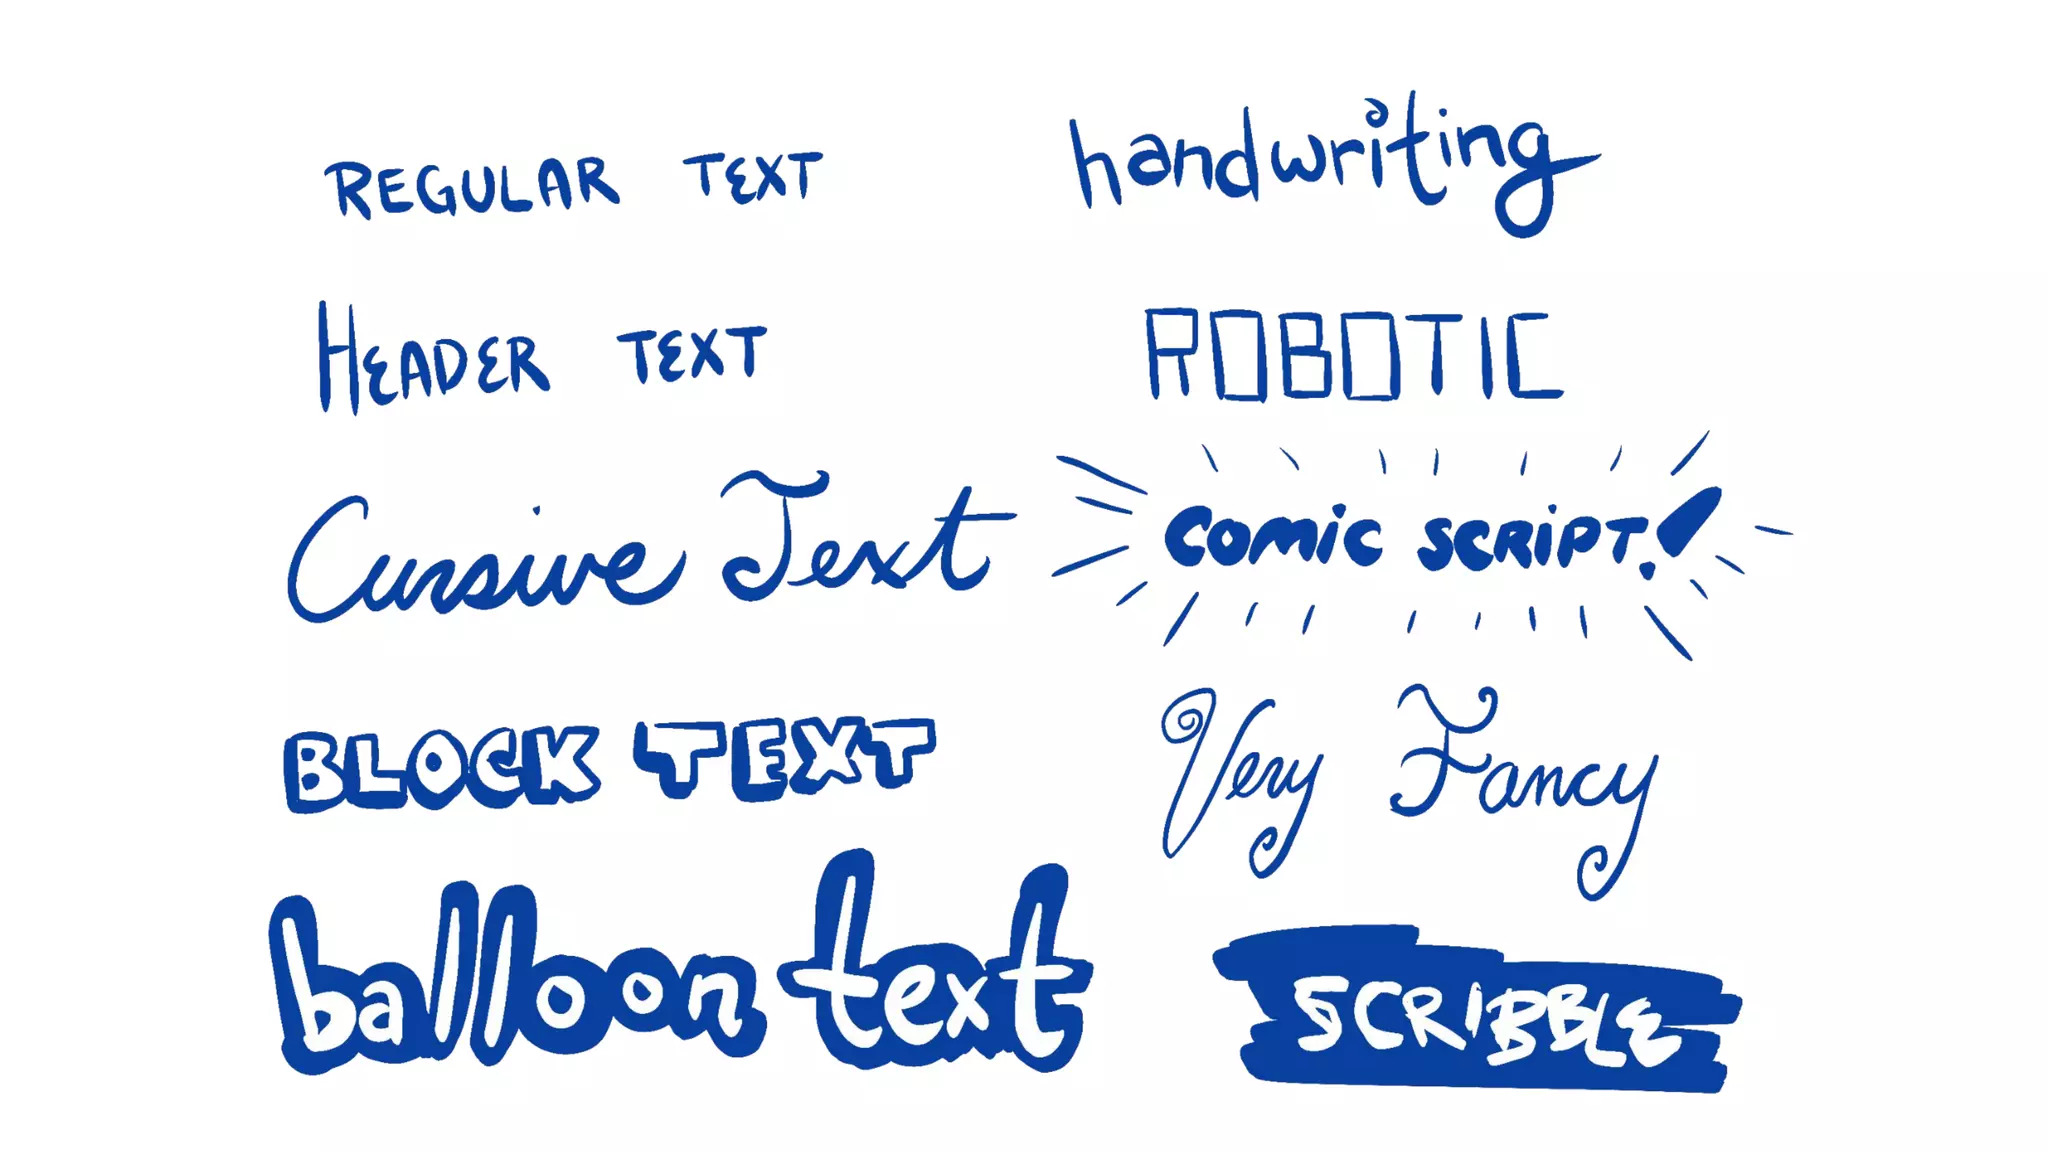 REGULAR TEXT
handwriting
HEADER TEXT
ROBOTIC
Cursive Text
COMIC SCRIPT!
BLOCK TEXT
Very Fancy
balloon text
SCRIBBLE